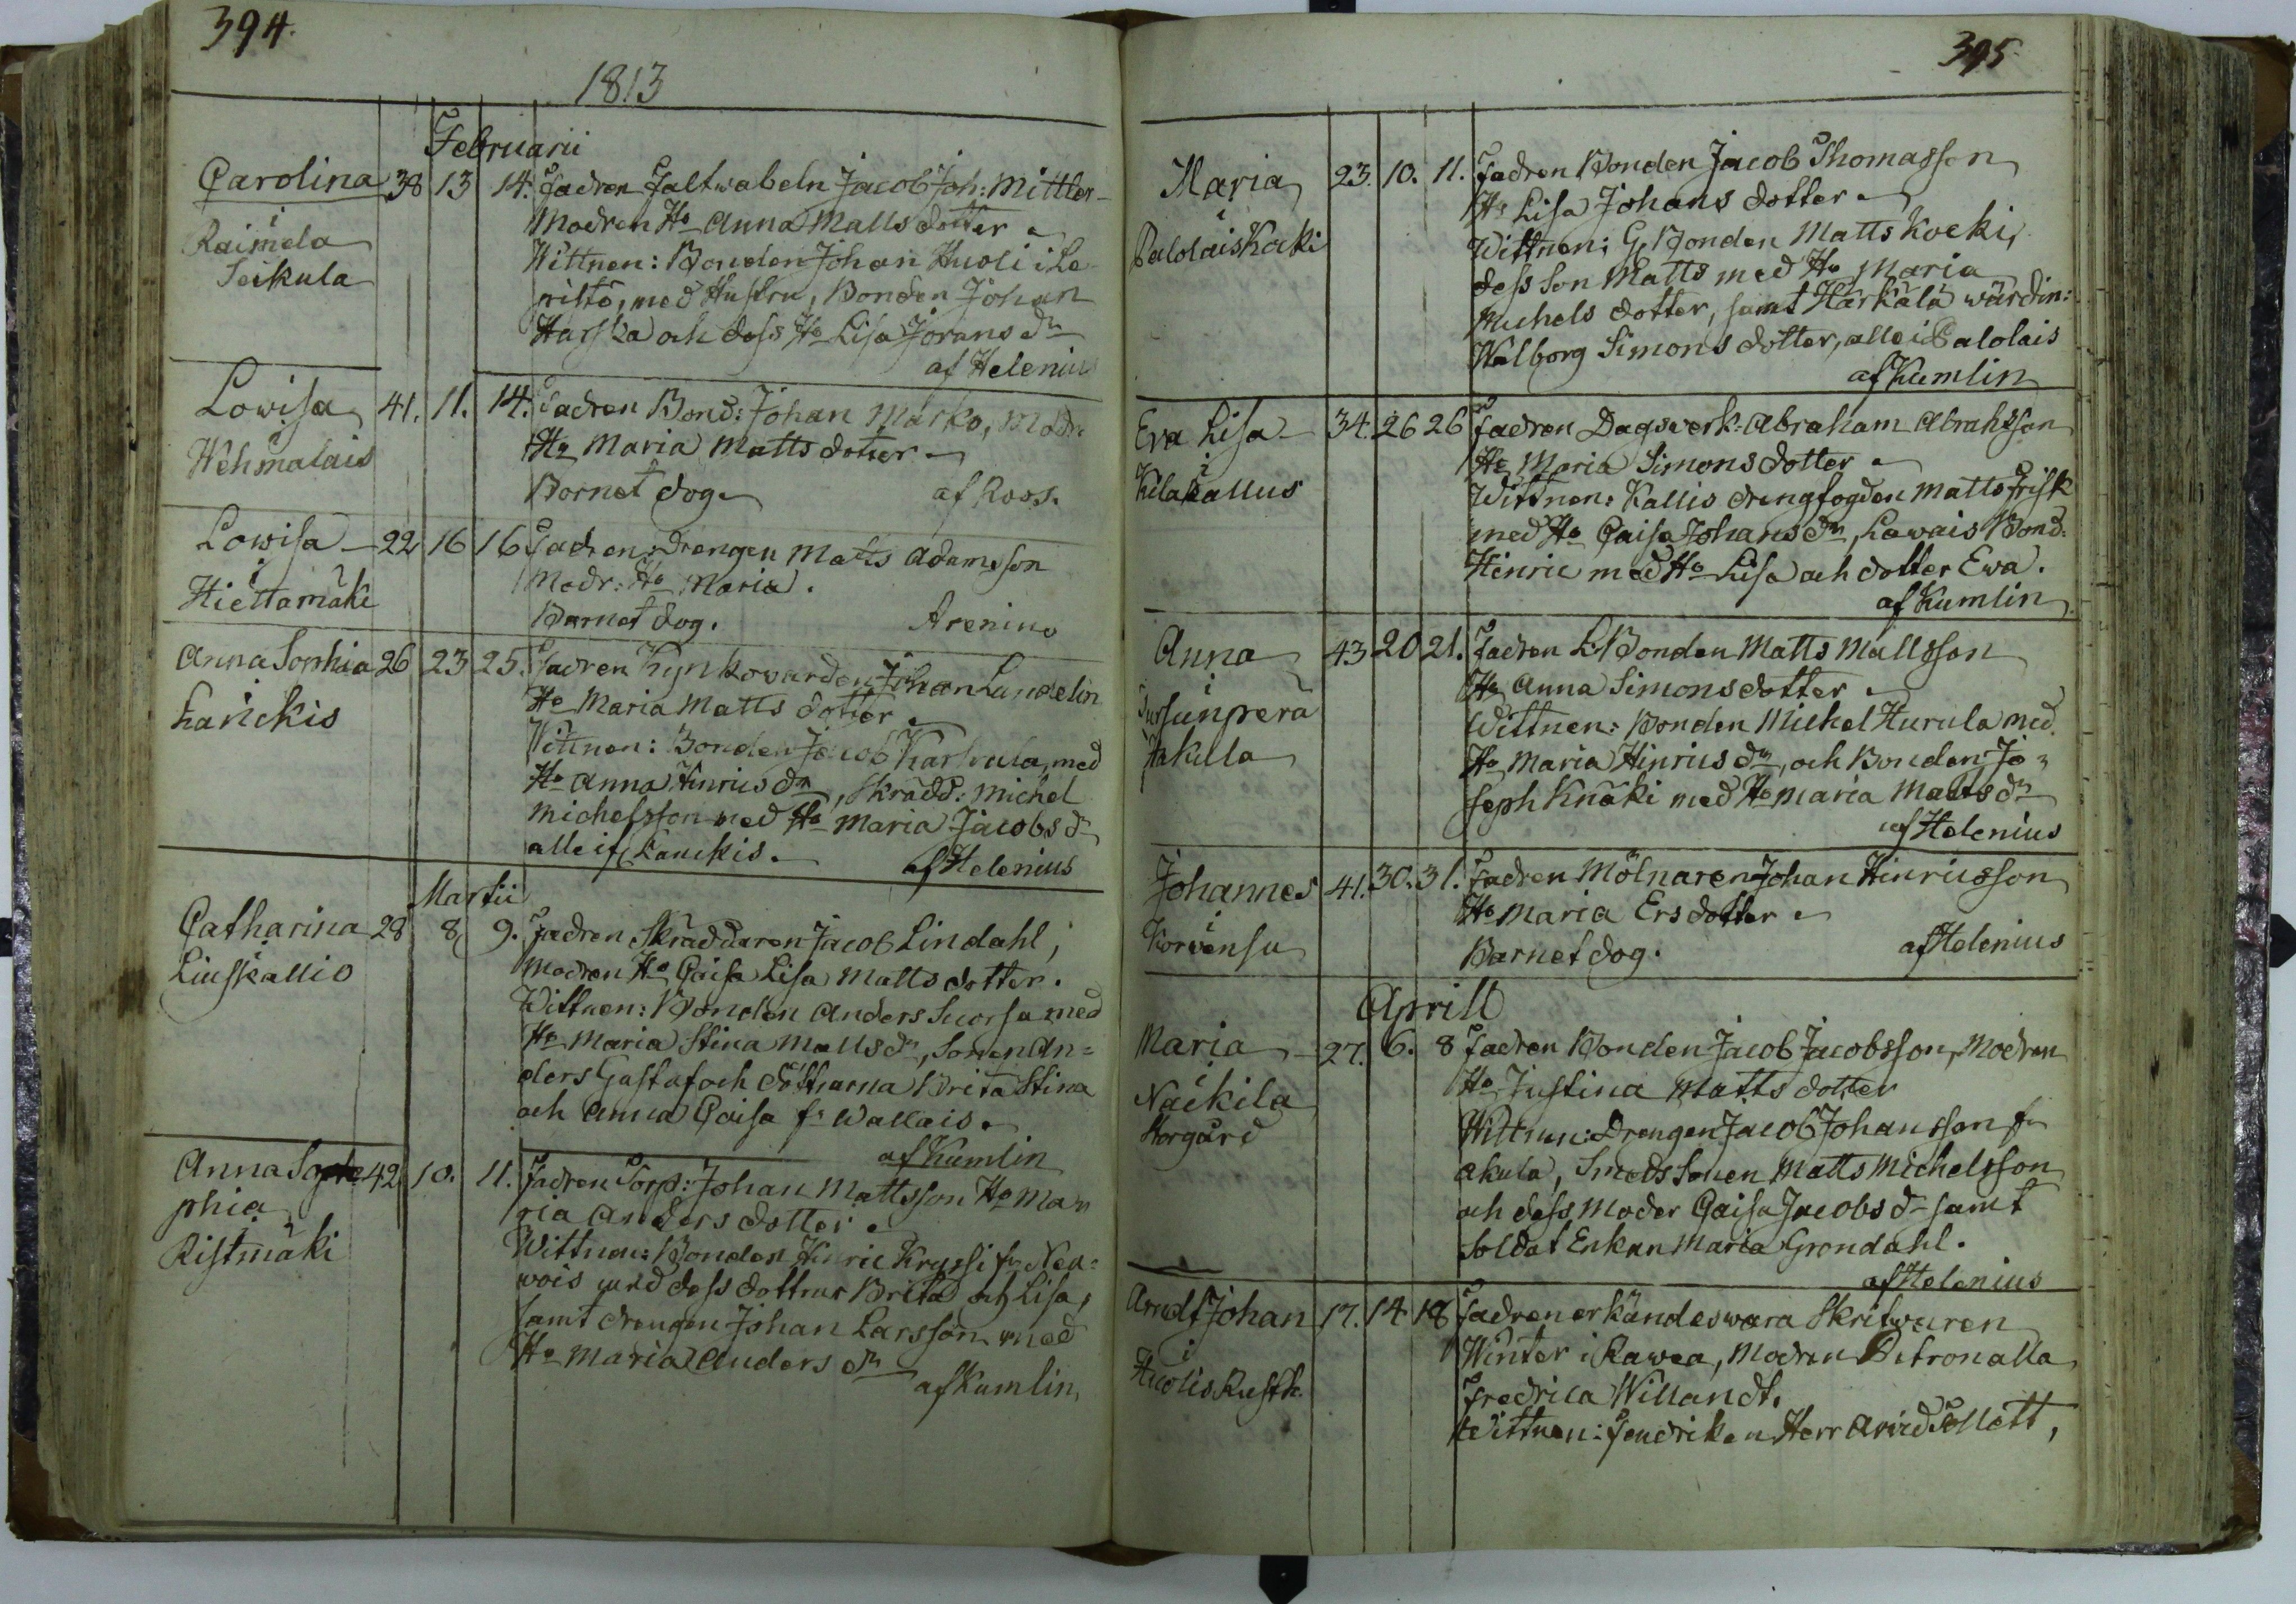 394.
1813
Februarii
Carolina 38 13 14. Fadren Faltwabeln Jacob Joh: Mittler
i Modren Ho Anna Matts dotter
Raimela Wittnen: Bonden Johan Huoli i Le
Seikula pistö, med Hustru, Bonden Johan
och dess Ho Lisa Jörans dr
af Helenius
Lowisa 41. 11. 14. Fadren Bond: Johan Marko, Modr:
i Ho Maria Matts dotter
Wehmalais Barnet dog. af Ross.
Lowisa 22 16 16 Fadren: Drengen Matts Adamsson
i Modr: Ho Maria.
Hiettamäki Barnet dog. Arenius
Anna Sophia 26 23 25. Fadren Johan Lundelin
i Ho Maria Matts dotter
Lanckis Wittnen: Bonden Jacob Karhula, med
Ho Anna Hinrics dr, Skrädd: Michel
Michelsson med Ho Maria Jacobs dr
alle if. Lanckis. af Helenius
Martii
Catharina 28 8 9. Fadren Skräddaren Jacob Lindahl,
i Modren Ho Caisa Lisa Matts dotter.
Liuskallio Wittnen: Bonden Anders Suorsa med
Ho Maria Stina Matts dr, Sonen An=
ders Gustaf och döttrarna Brita Stina
och Anna Caisa fr Wallais.
af Kumlin
Anna So 42 10. 11. Fadren Torp: Johan Mattsson Ho Ma
phia ria Anders dotter
i Wittnen: Bonden Hinric Krussi fr Nea=
Ristmäki wois med dess dottrar Brita och Lisa,
samt drengen Johan Larsson med
Ho Maria Anders dr
af Kumlin,
395
Maria 23. 10. 11. Fadren Bonden Jacob Thomasson
i Ho Lisa Johans dotter
Palolais Koki Wittnen: G. Bonden Matts Kocki,
dess Son Matts med Ho Maria
Michels dotter, samt Härkälä wärdin:
Walborg Simons dotter, alle i Palolais
af Kumlin
Eva Lisa 34. 26 26 Fadren Dagsverk: Abraham Abrahsson
i Ho Maria Simons dotter
Kilakallus Wittnen: Kallis drengfogden Matts Frisk
med Ho Caisa Johans dr, Lawais Bond:
Hinric med Ho Lisa och dotter Ewa.
af Kumlin
Anna 43 20 21. Fadren L. Bonden Matts Mattsson
i Ho Anna Simons dotter
Sursunperä Wittnen: Bonden Michel Hurula med
Kakilla Ho Maria Hinrics dr, och Bonden Jo=
seph Knäki med Ho Maria Matts dr
af Helenius
Johannes 41. 30. 31. Fadren Mölnaren Johan Hinricsson
i Ho Maria Ers dotter
Korvensu Barnet dog. af Helenius
Aprill
Maria 27. 6. 8 Fadren Bonden Jacob Jacobsson, Modren
i Ho Justina Matts dotter
Näckilä Wittnen: Drengen Jacob Johansson fr
Storgård Akula, Smeds Sonen Matts Michelsson
och dess Moder Caisa Jacobs dr samt
Soldat Enkan Maria Grondahl.
af Helenius
Arndt Johan 17. 14 18 Fadren erkändes wara Skrifwaren
i Winter i Rawea, Modren Petronalla
Huolis Rusth. Fredrica Willandt.
Wittnen: Fendriken Herr Arvid Pollett,